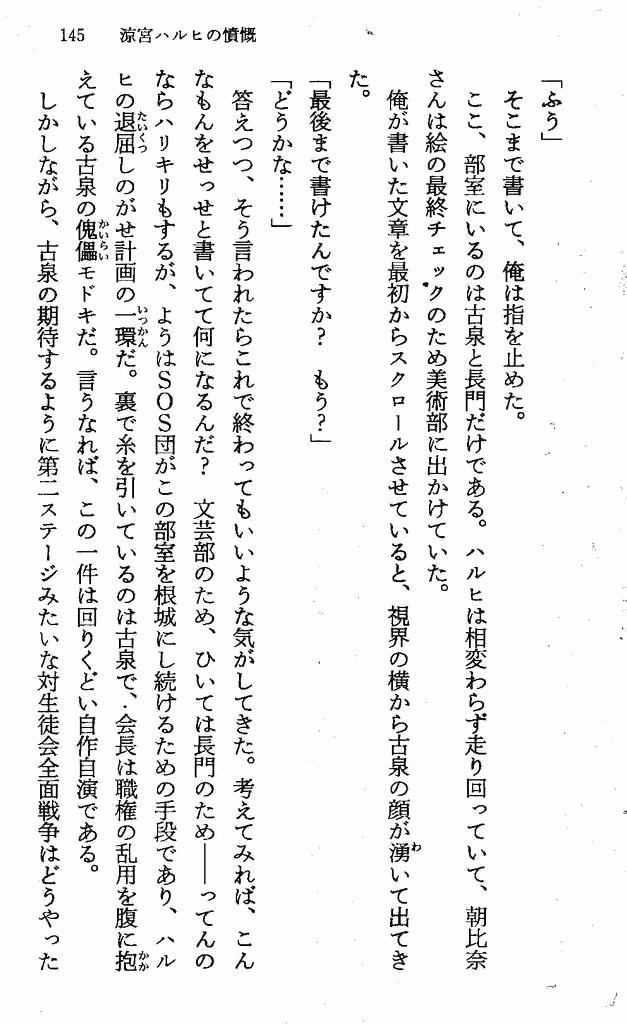 145　涼宮ハルヒの憤慨
「ふう」
　そこまで書いて、俺は指を止めた。
　ここ、部室にいるのは古泉と長門だけである。ハルヒは相変わらず走り回っていて、朝比奈
さんは絵の最終チェックのため美術部に出かけていた。
　俺が書いた文章を最初からスクロールさせていると、視界の横から古泉の顔が湧いて出てき
た。
「最後まで書けたんですか？　もう？」
「どうかな……」
　答えつつ、そう言われたらこれで終わってもいいような気がしてきた。考えてみれば、こん
なもんをせっせと書いてて何になるんだ？　文芸部のため、ひいては長門のため――ってんの
ならハリキリもするが、ようはＳＯＳ団がこの部室を根城にし続けるための手段であり、ハル
ヒの退屈しのがせ計画の一環だ。裏で糸を引いているのは古泉で、会長は職権の乱用を腹に抱
えている古泉の傀儡モドキだ。言うなれば、この一件は回りくどい自作自演である。
　しかしながら、古泉の期待するように第二ステージみたいな対生徒会全面戦争はどうやった